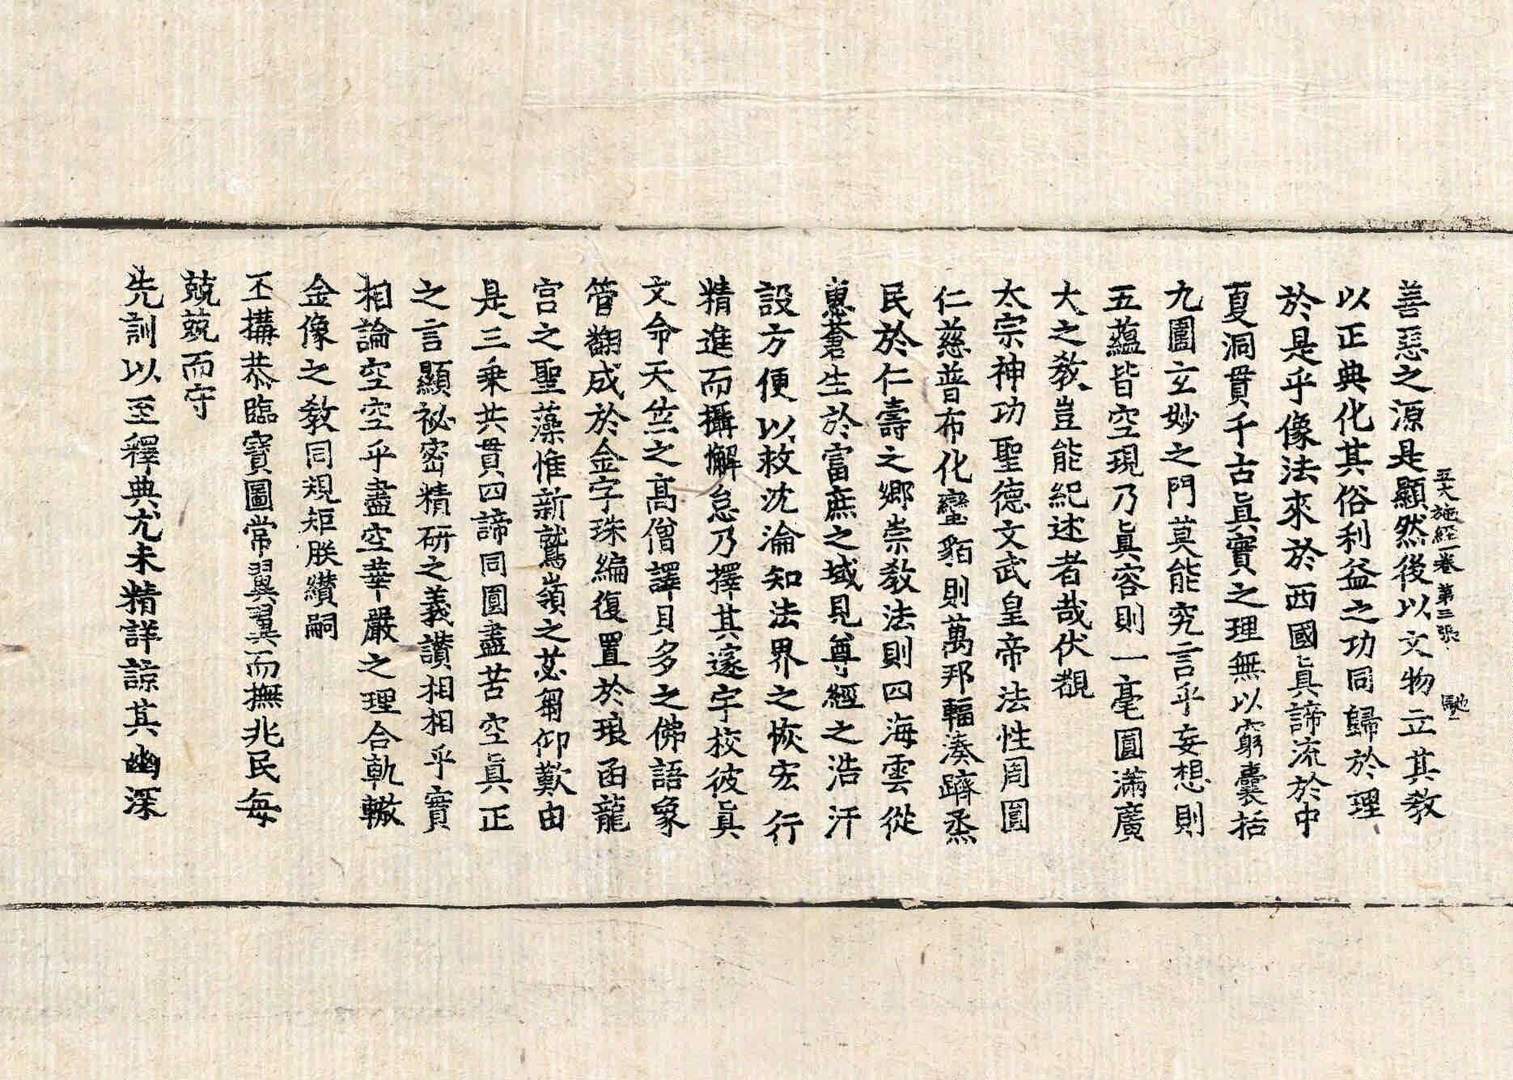 善惡之源是顯然後以文物立其教
五大施經一卷 第三張 馳
以正典化其俗利益之功同歸於理
於是乎像法來於西國真諦流於中
夏洞貫千古真實之理無以窮囊括
九圍玄妙之門莫能究言乎妄想則
五蘊皆空現乃真容則一毫圓滿廣
大之教豈能紀述者哉伏覩
太宗神功聖德文武皇帝法性周圓
仁慈普布化蠻貊則萬邦輻湊躋烝
民於仁壽之鄉崇教法則四海雲從
惠蒼生於富庶之域見尊經之浩汗
設方便以救沈淪知法界之恢宏行
精進而攝懈怠乃擇其邃宇校彼真
文命天竺之高僧譯貝多之佛語象
管翻成於金字珠編復置於琅函龍
宮之聖藻惟新鷲嶺之苾蒭仰歎由
是三乘共貫四諦同圓盡苦空真正
之言顯祕密精研之義讚相相乎實
相論空空乎盡空華嚴之理合軌轍
金像之教同規矩朕纘嗣
丕搆恭臨寶圖常翼翼而撫兆民每
兢兢而守
先訓以至釋典尤未精詳諒其幽深